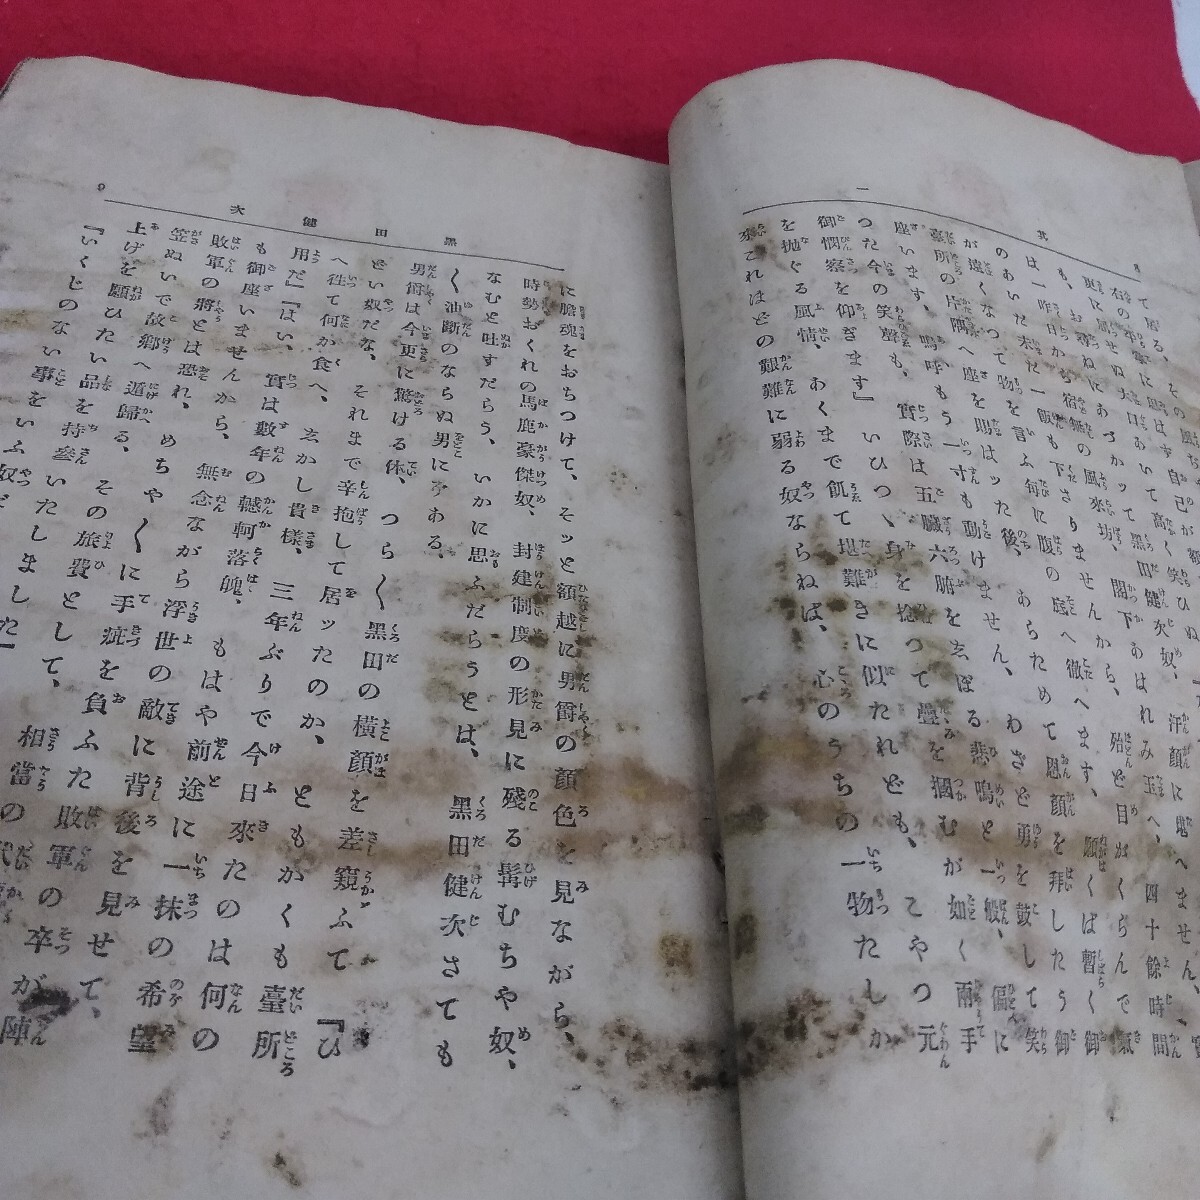 其一
て居る、その風な
右の卒塔に思はず自己が額
更に屈せぬ大口あいて高く笑ひぬ
も、お尋ねにあづかッて黑田健次奴、汗顔に堪へません、
は一昨日から宿無の風來坊、閣下あはれみ玉へ、四十餘時間
のあいだ未だ一飯も下さりませんから、殆ど目がくらんで氣
が遠くなつて物を言ふ毎に腹の底へ徹へます、願くば暫く御
臺所の片隅へ座を賜はッた後、あらためて恩顔を拜したう御
座います、嗚呼もう一寸も動けません、わざと勇を鼓して笑
つた今の笑聲も、實際は五臓六腑を玄ぼる悲鳴と一般、偏に
御憫察を仰ぎます』　いひつゝ身を捻つて疊を摑むが如く兩手
を抛ぐる風情、あくまで飢て堪難きに似たれども、こやつ元
來これほどの艱難に弱る奴ならねば、心のうちの一物たしか
黑田健次
9
に膽魂をおちつけて、そッと額越に男爵の顔色を見ながら、
時勢おくれの馬鹿豪傑奴、封建制度の形見に殘る髯むちや奴、
なむと吐すだらう、いかに思ふだらうとは、黑田健次さても
〱油斷のならぬ男にぞある、
男爵は今更に驚ける体、つら〱黑田の橫顔を差窺ふて『ひ
どい奴だな、それまで辛抱して居ッたのか、ともかくも臺所
へ徃て何か食へ、玄かし貴樣、三年ぶりで今日來たのは何の
用だ』『はい、實は數年の轗軻落魄、もはや前途に一抹の希望
も御座いませんから、無念ながら浮世の敵に背後を見せて、
敗軍の將とは恐れ、めちや〱に手疵を負ふた敗軍の卒が陣
笠ぬいで故鄕へ遁歸る、その旅費として、相當の代
上げを願ひたい品を持參いたしました』
『いくじのない事をいふ奴だ